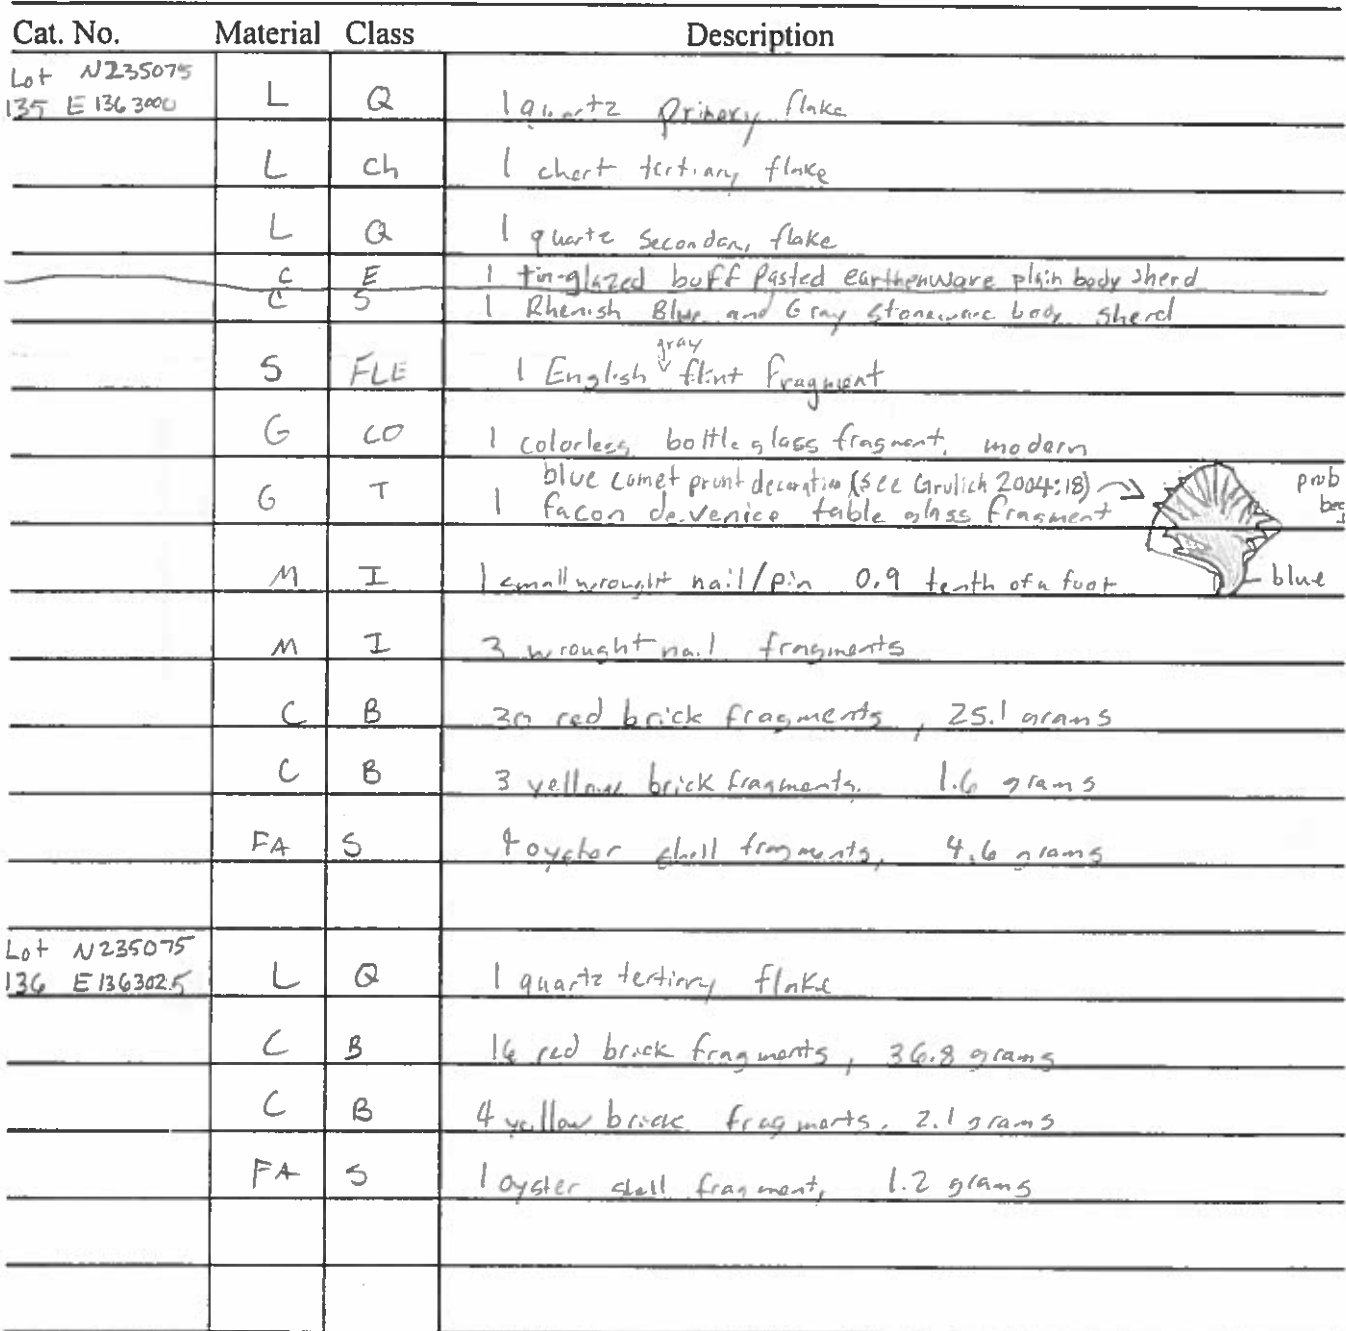 Cat. No. Material Class Description
Lot N235075
135 E 1363000 L Q 1 quartz primary flake
L Ch 1 chert tertiary flake
L Q 1 quartz secondary flake
C E 1 tin-glazed buff pasted earthenware plain body sherd
C S 1 Rhenish Blue and Gray stoneware body sherd
gray
S FLE 1 English flint fragment
G CO 1 colorless bottle glass fragment, modern
blue comet prunt decoration (see Grulich 2004:18) prob
G T 1 facon de venice table glass fragment
M I 1 small wrought nail/pin 0.9 tenth of a foot blue
M I 3 wrought nail fragments
C B red brick fragments, 25.1 grams
C B 3 yellow brick fragments. 1.6 grams
FA S oyster shell fragments, 4.6 grams
Lot N235075
136 E 136302.5 L Q 1 quartz tertirry flake
C B 16 red brick fragments, 36.8 grams
C B 4 yellow brick fragments, 2.1 grams
FA S 1 oyster shell fragment, 1.2 grams